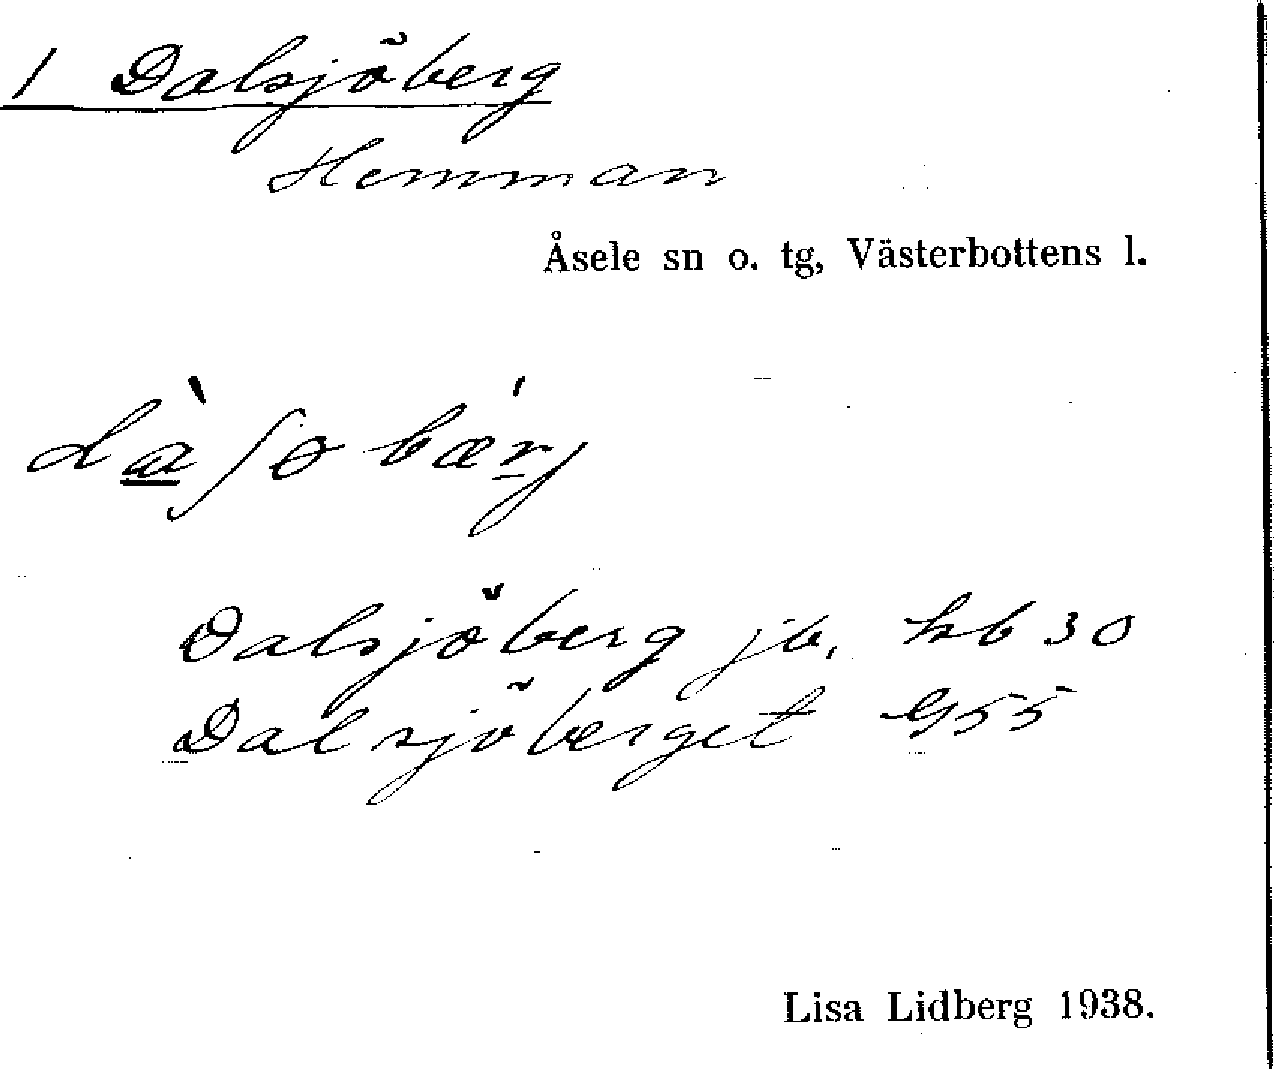 1 Dalsjöberg
Hemman
Åsele sn o. tg, Västerbottens l.
dàʃɵbæ̀rj
Dalsjöberg jb, hb 30
Dalsjöberget G55
Lisa Lidberg 1938.